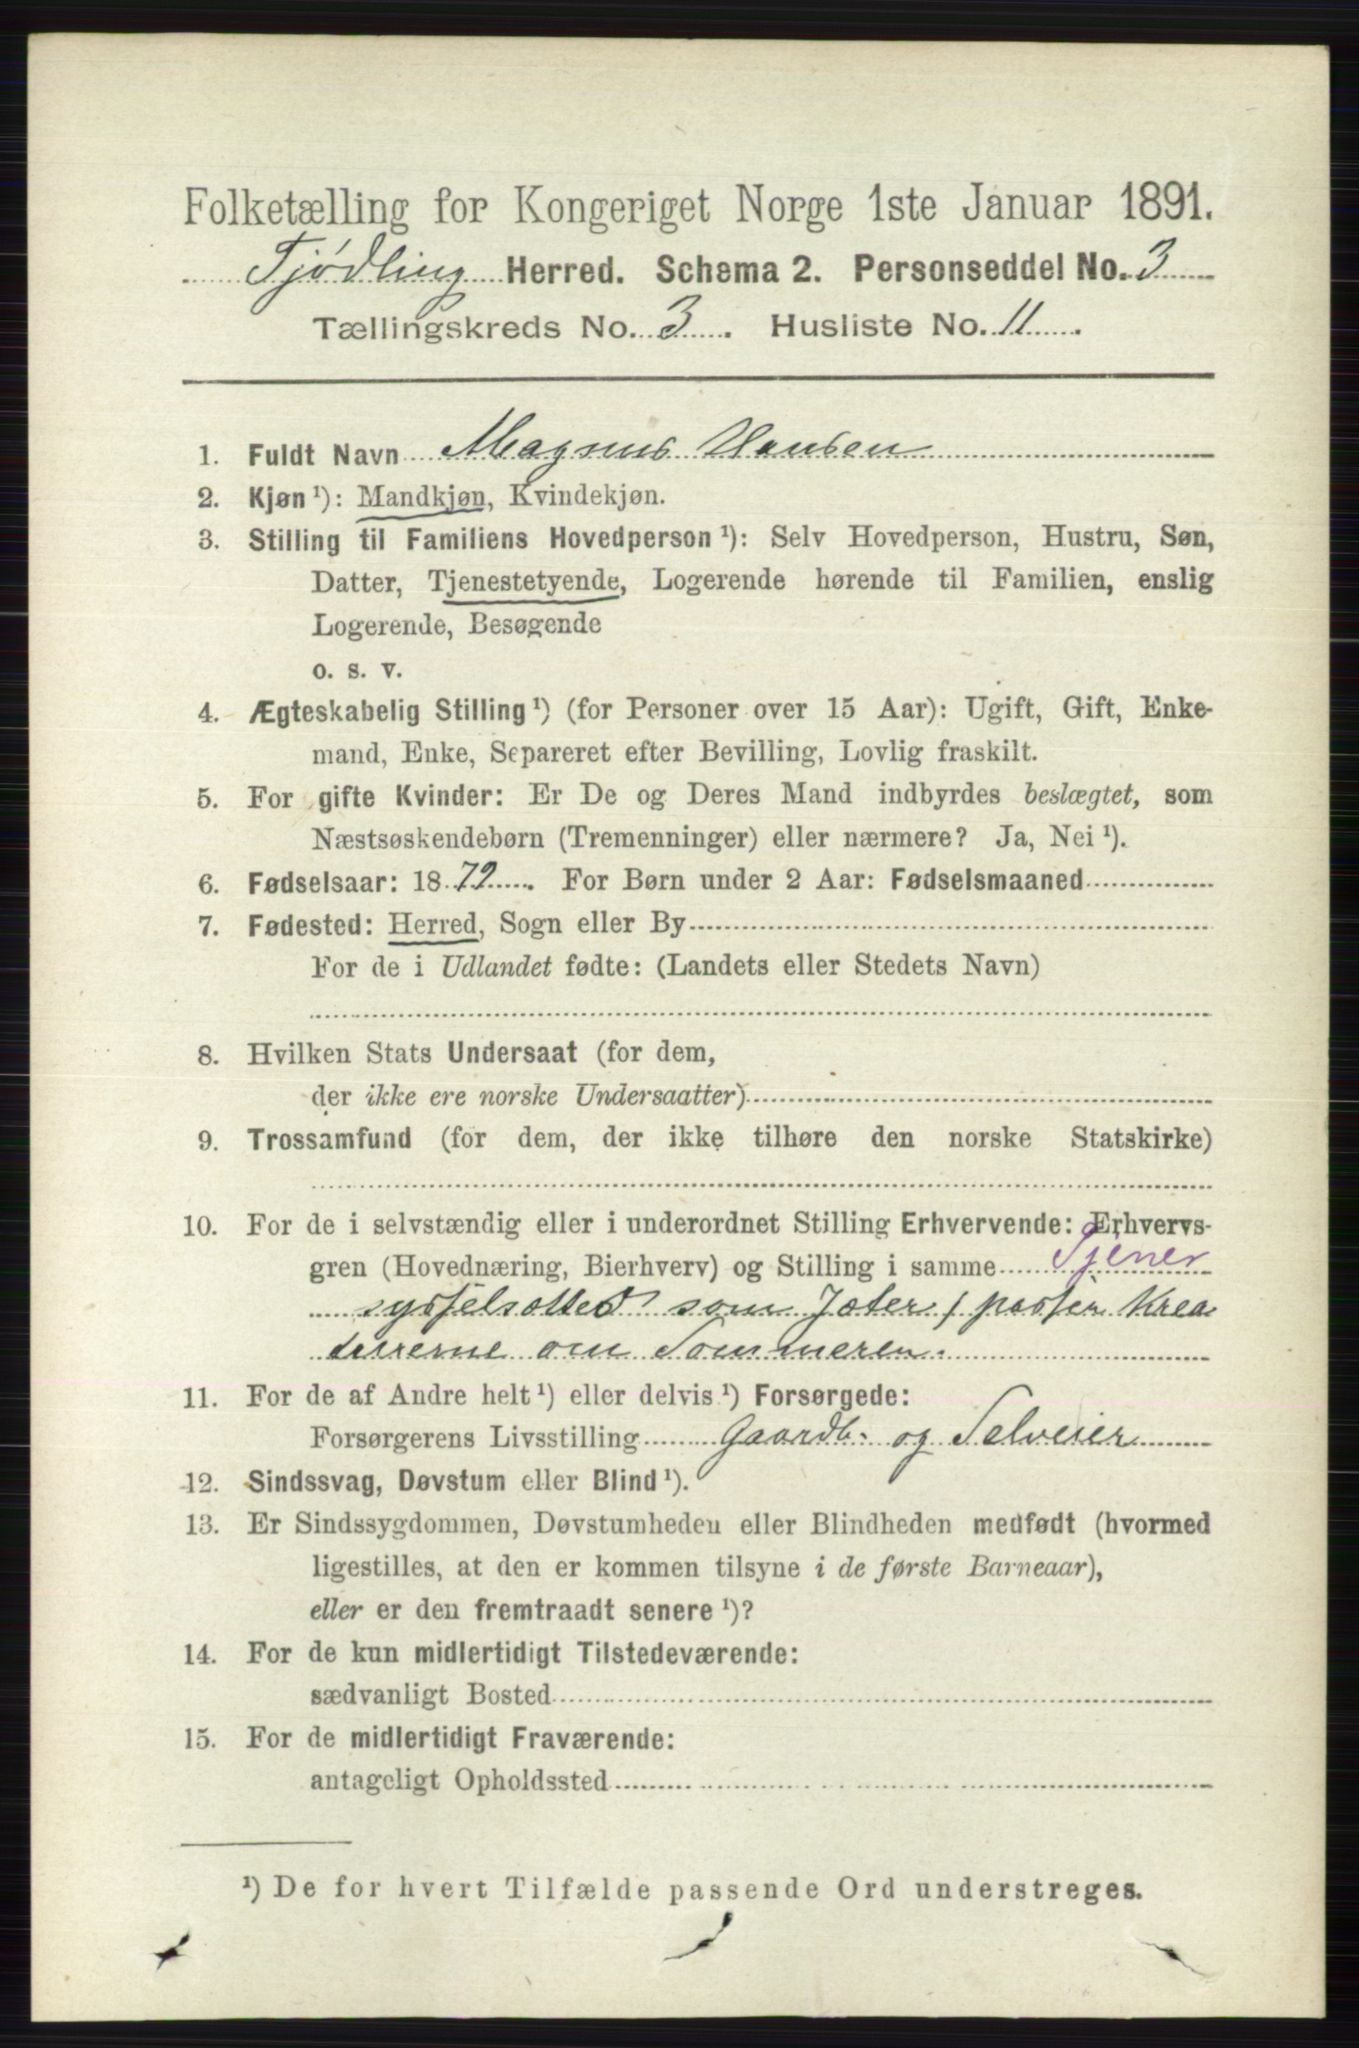 Folketælling for Kongeriget Norge 1ste Januar 1891.
Tjødling Herred. Schema 2. Personseddel No. 3
Tællingskreds No. 3. Husliste No. 11.
1. Fuldt Navn Magnus Hansen
2. Kjøn ¹): Mandkjøn, Kvindekjøn.
3. Stilling til Familiens Hovedperson ¹): Selv Hovedperson, Hustru, Søn,
Datter, Tjenestetyende, Logerende hørende til Familien, enslig
Logerende, Besøgende
o. s. v.
4. Ægteskabelig Stilling ¹) (for Personer over 15 Aar): Ugift, Gift, Enke-
mand, Enke, Separeret efter Bevilling, Lovlig fraskilt.
5. For gifte Kvinder: Er De og Deres Mand indbyrdes beslægtet, som
Næstsøskendebørn (Tremenninger) eller nærmere? Ja, Nei ¹).
6. Fødselsaar: 1879. For Børn under 2 Aar: Fødselsmaaned
7. Fødested: Herred, Sogn eller By
For de i Udlandet fødte: (Landets eller Stedets Navn)
8. Hvilken Stats Undersaat (for dem,
der ikke ere norske Undersaatter)
9. Trossamfund (for dem, der ikke tilhøre den norske Statskirke)
10. For de i selvstændig eller i underordnet Stilling Erhvervende: Erhvervs-
gren (Hovednæring, Bierhverv) og Stilling i samme Tjener
sysselsættes som Jæter / passer Krea
turerne om Sommeren.
11. For de af Andre helt ¹) eller delvis ¹) Forsørgede:
Forsørgerens Livsstilling Gaardb. og Selveier
12. Sindssvag, Døvstum eller Blind ¹).
13. Er Sindssygdommen, Døvstumheden eller Blindheden medfødt (hvormed
ligestilles, at den er kommen tilsyne i de første Barneaar),
eller er den fremtraadt senere ¹)?
14. For de kun midlertidigt Tilstedeværende:
sædvanligt Bosted
15. For de midlertidigt Fraværende:
antageligt Opholdssted
¹) De for hvert Tilfælde passende Ord understreges.